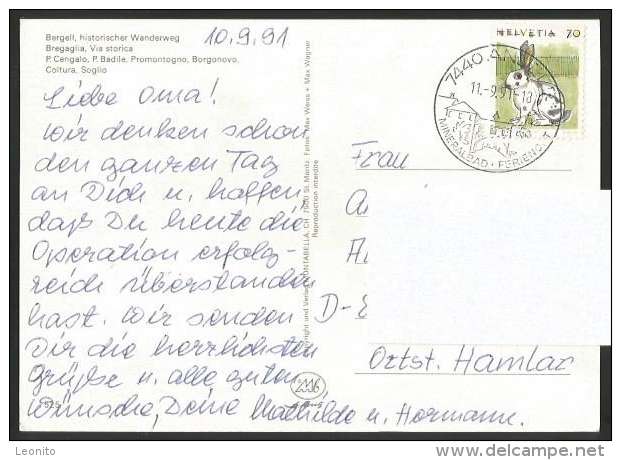 Bergell, historischer Wanderweg
Bregaglia, Via storica
P. Cengalo, P. Badile, Promontogno, Borgonovo,
Coltura, Soglio
10.9.91
Liebe Oma!
Wir denken schon
den ganzen Tag
an Dich u. hoffen,
daß Du heute die
Operation erfolg-
reich überstanden
hast. Wir senden
Dir die herzlichsten
Grüße u. alle guten
Wünsche, Deine Mathilde u. Hermann.
525
Fotos: Max Weiss + Max Wagner
und Verlag MONTABELLA, CH 7500 St. Moritz
Reproduction interdite
HELVETIA 70
7440 AN
11.-9.91-18
MINERALBAD + FERIENO
Frau
D-
Ortst. Hamlar
Leonito
www.delcampe.net